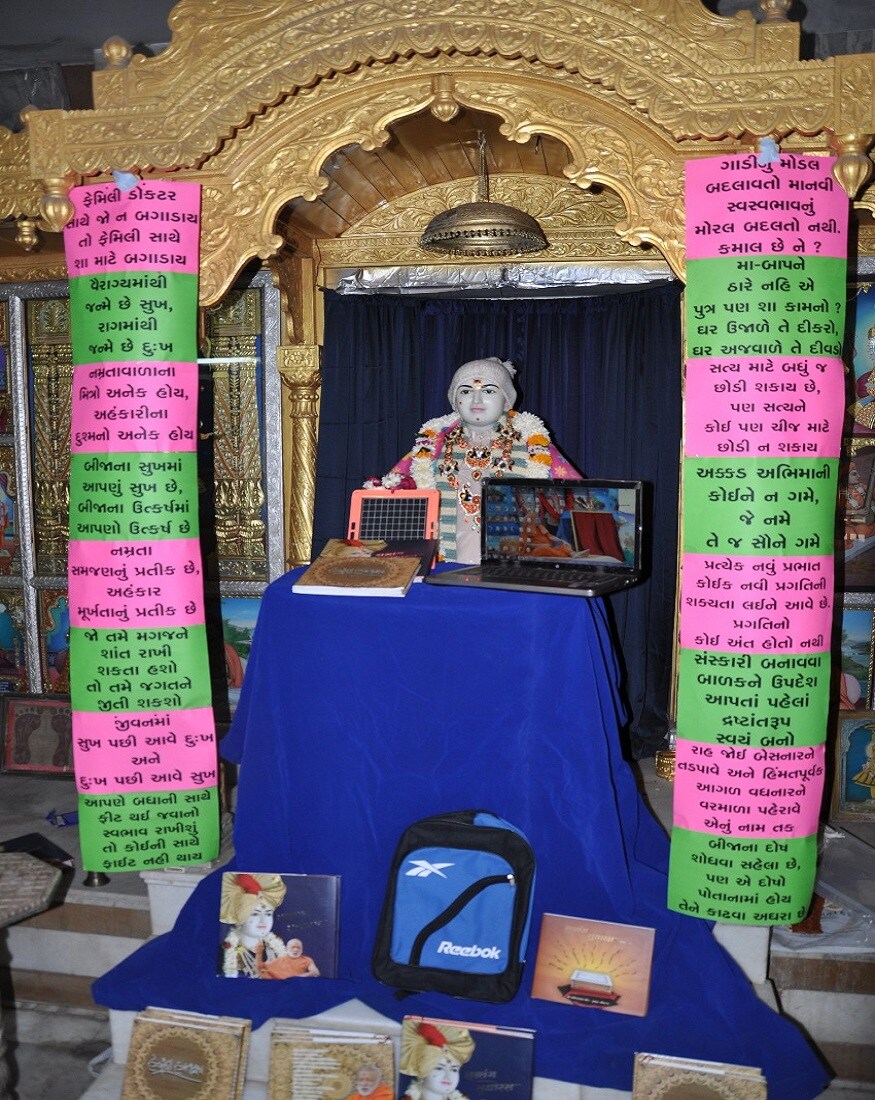 ફેમિલી ડૉક્ટર
સાથે જો ન બગાડાય
તો ફેમિલી સાથે
શા માટે બગાડાય
વૈરાગ્યમાંથી
જન્મે છે સુખ,
રાગમાંથી
જન્મે છે દુઃખ
નમ્રતાવાળાના
મિત્રો અનેક હોય,
અહંકારીના
દુશ્મનો અનેક હોય
બીજાના સુખમાં
આપણું સુખ છે,
બીજાના ઉત્કર્ષમાં
આપણો ઉત્કર્ષ છે
નમ્રતા
સમજણનું પ્રતીક છે,
અહંકાર
મૂર્ખતાનું પ્રતીક છે
જો તમે મગજને
શાંત રાખી
શકતા હશો
તો તમે જગતને
જીતી શકશો
જીવનમાં
સુખ પછી આવે દુઃખ
અને
દુઃખ પછી આવે સુખ
આપણે બધાની સાથે
ફીટ થઈ જવાનો
સ્વભાવ રાખીશું
તો કોઈની સાથે
ફાઈટ નહી થાય
ગાડીનું મોડલ
બદલાવતો માનવી
સ્વસ્વભાવનું
મોરલ બદલતો નથી.
કમાલ છે ને ?
મા-બાપને
ઠારે નહિ એ
પુત્ર પણ શા કામનો ?
ઘર ઉજાળે તે દીકરો,
ઘર અજવાળે તે દીવડો
સત્ય માટે બધું જ
છોડી શકાય છે,
પણ સત્યને
કોઈ પણ ચીજ માટે
છોડી ન શકાય
અક્કડ અભિમાની
કોઈને ન ગમે,
જે નમે
તે જ સૌને ગમે
પ્રત્યેક નવું પ્રભાત
કોઈક નવી પ્રગતિની
શક્યતા લઈને આવે છે.
પ્રગતિનો
કોઈ અંત હોતો નથી
સંસ્કારી બનાવવા
બાળકને ઉપદેશ
આપતાં પહેલાં
દ્રષ્ટાંતરૂપ
સ્વયં બનો
રાહ જોઈ બેસનારને
તડપાવે અને હિંમતપૂર્વક
આગળ વધનારને
વરમાળા પહેરાવે
એનું નામ તક
બીજાના દોષ
શોધવા સહેલા છે,
પણ એ દોષો
પોતાનામાં હોય
તેને કાઢવા અઘરા છે
Reebok